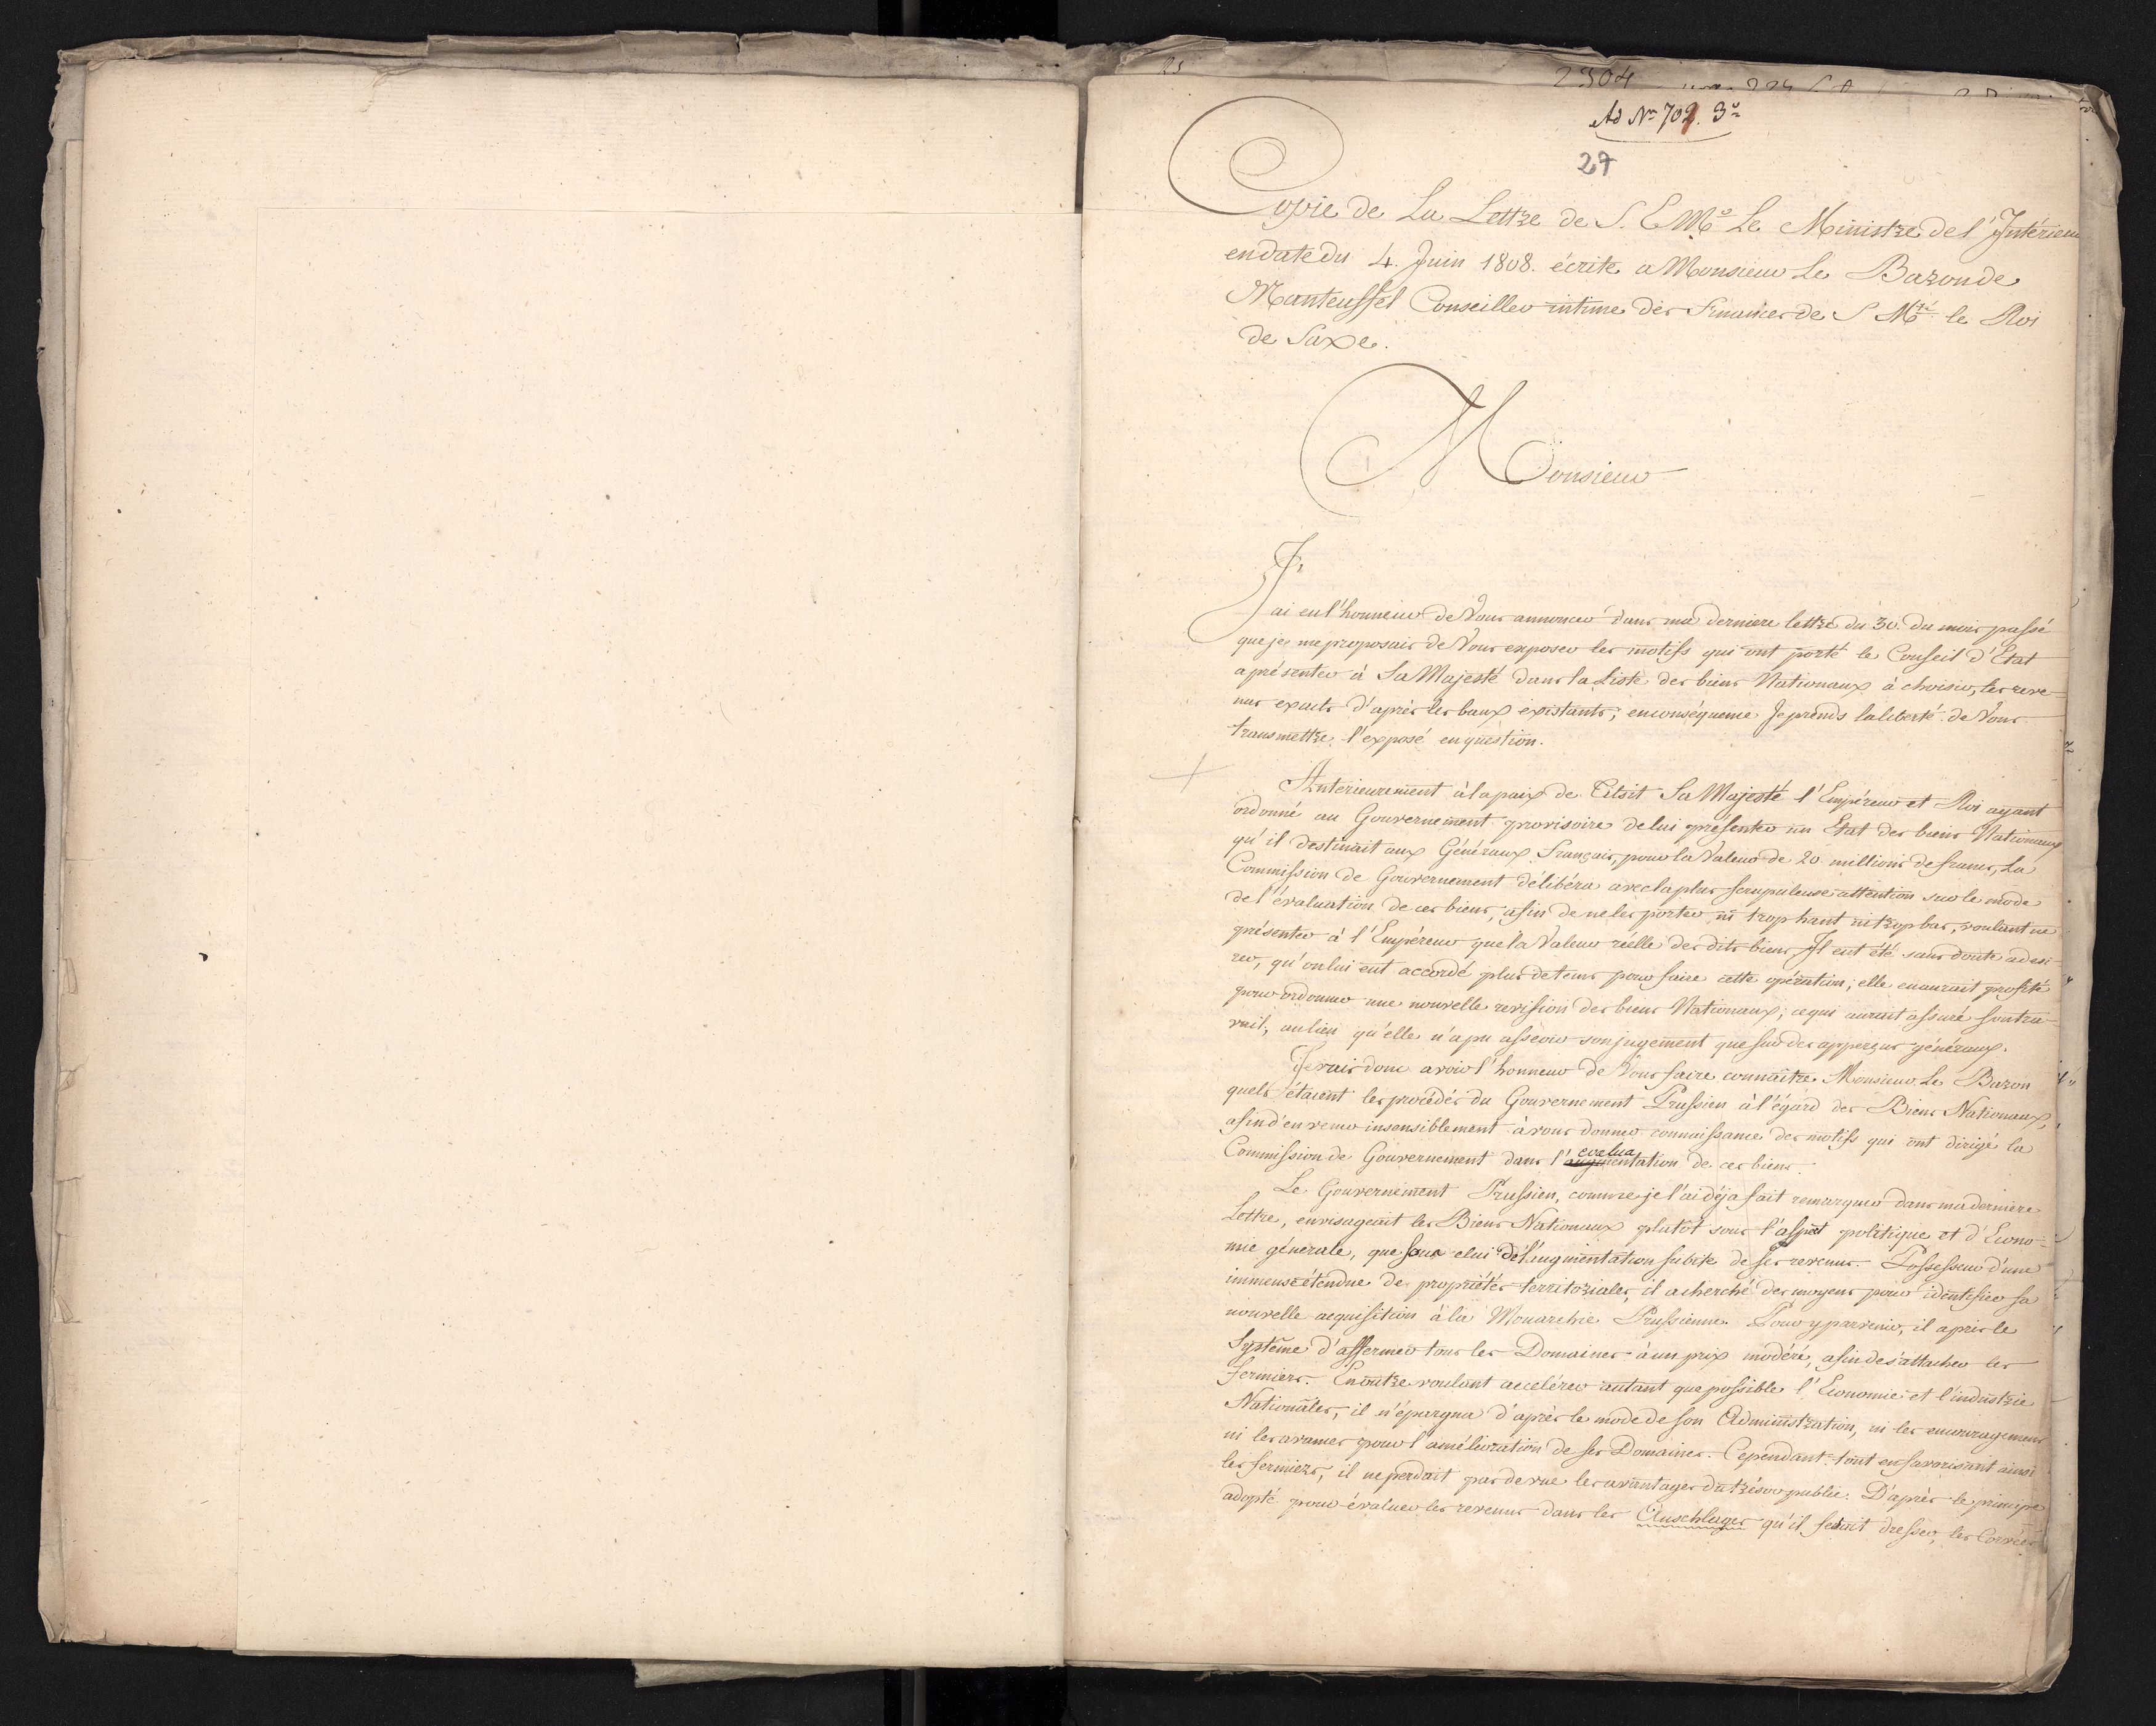 25
2304
Ad Nro 702. 3o
27
Copie de La Lettre de S. E Mr Le Ministre de l'Intérieur
en date du 4. Juin 1808. écrite a Monsieur Le Baron de
Manteuffel Conseiller intime des Finances de S Mté le Roi
de Saxe.
Monsieur
J'ai eu l'honneur de Vous annoncer dans ma derniere lettre du 30. du mois passé
que je me proposais de Vous exposer les motifs qui ont porté le Conseil d'Etat
a présenter à Sa Majesté dans la Liste des biens Nationaux à choisir, les reve-
nus exacts d'après les baux existants; en conséquence Je prends la liberté de Vous
transmettre l'exposé en question.
Anterieurement à la paix de Tilsit Sa Majesté l'Empéreur et Roi ayant
ordonné au Gouvernement provisoire de lui présenter un Etat des biens Nationaux
qu'il destinait aux Généraux Français, pour la Valeur de 20 millions de francs, La
Commission de Gouvernement délibéra avec la plus scrupuleuse attention sur le mode
de l'évaluation de ces biens, afin de ne les porter ni trop haut ni trop bas, voulant ne
présenter à l'Empéreur que la Valeur réelle des dits biens Il eut été sans doute a desi-
rer, qu'on lui eut accordé plus de tems pour faire cette opération; elle en aurait profité
pour ordonner une nouvelle revision des biens Nationaux; ce qui aurait assuré son tra-
vail, au lieu qu'elle n'a pu asseoir son jugement que sur des apperçus généraux.
Je vais donc avoir l'honneur de Vous faire connaître Monsieur Le Baron
quels étaient les procédés du Gouvernement Prussien à l'égard des Biens Nationaux,
afin d'en venir insensiblement à vous donner connaissance des motifs qui ont dirigé la
Commission de Gouvernement dans l'augmentation evalua de ces biens.
Le Gouvernement Prussien, comme je l'ai déja fait remarquer dans ma derniere
Lettre, envisageait les Biens Nationaux plutôt sous l'aspect politique et d'Econo-
mie génerale, que sous celui de l'augmentation subite de ses revenus. Possesseur d'une
immense étendue de propriétés territoriales, il a cherché des moyens pour identifier sa
nouvelle acquisition à la Monarchie Prussienne. Pour y parvenir, il a pris le
Système d'affermer tous les Domaines à un prix modéré, afin de s'attacher les
fermiers. En outre voulant accelérer autant que possible l'Economie et l'industrie
Nationales, il n'épargna d'après le mode de son Administration, ni les encouragemens
ni les avances pour l'amélioration de ses Domaines. Cependant tout en favorisant ainsi
les fermiers, il ne perdait pas de vue les avantages du trésor public. D'après le principe
adopté pour évaluer les revenus dans les Anschlages qu'il faisait dresser, les Corvées